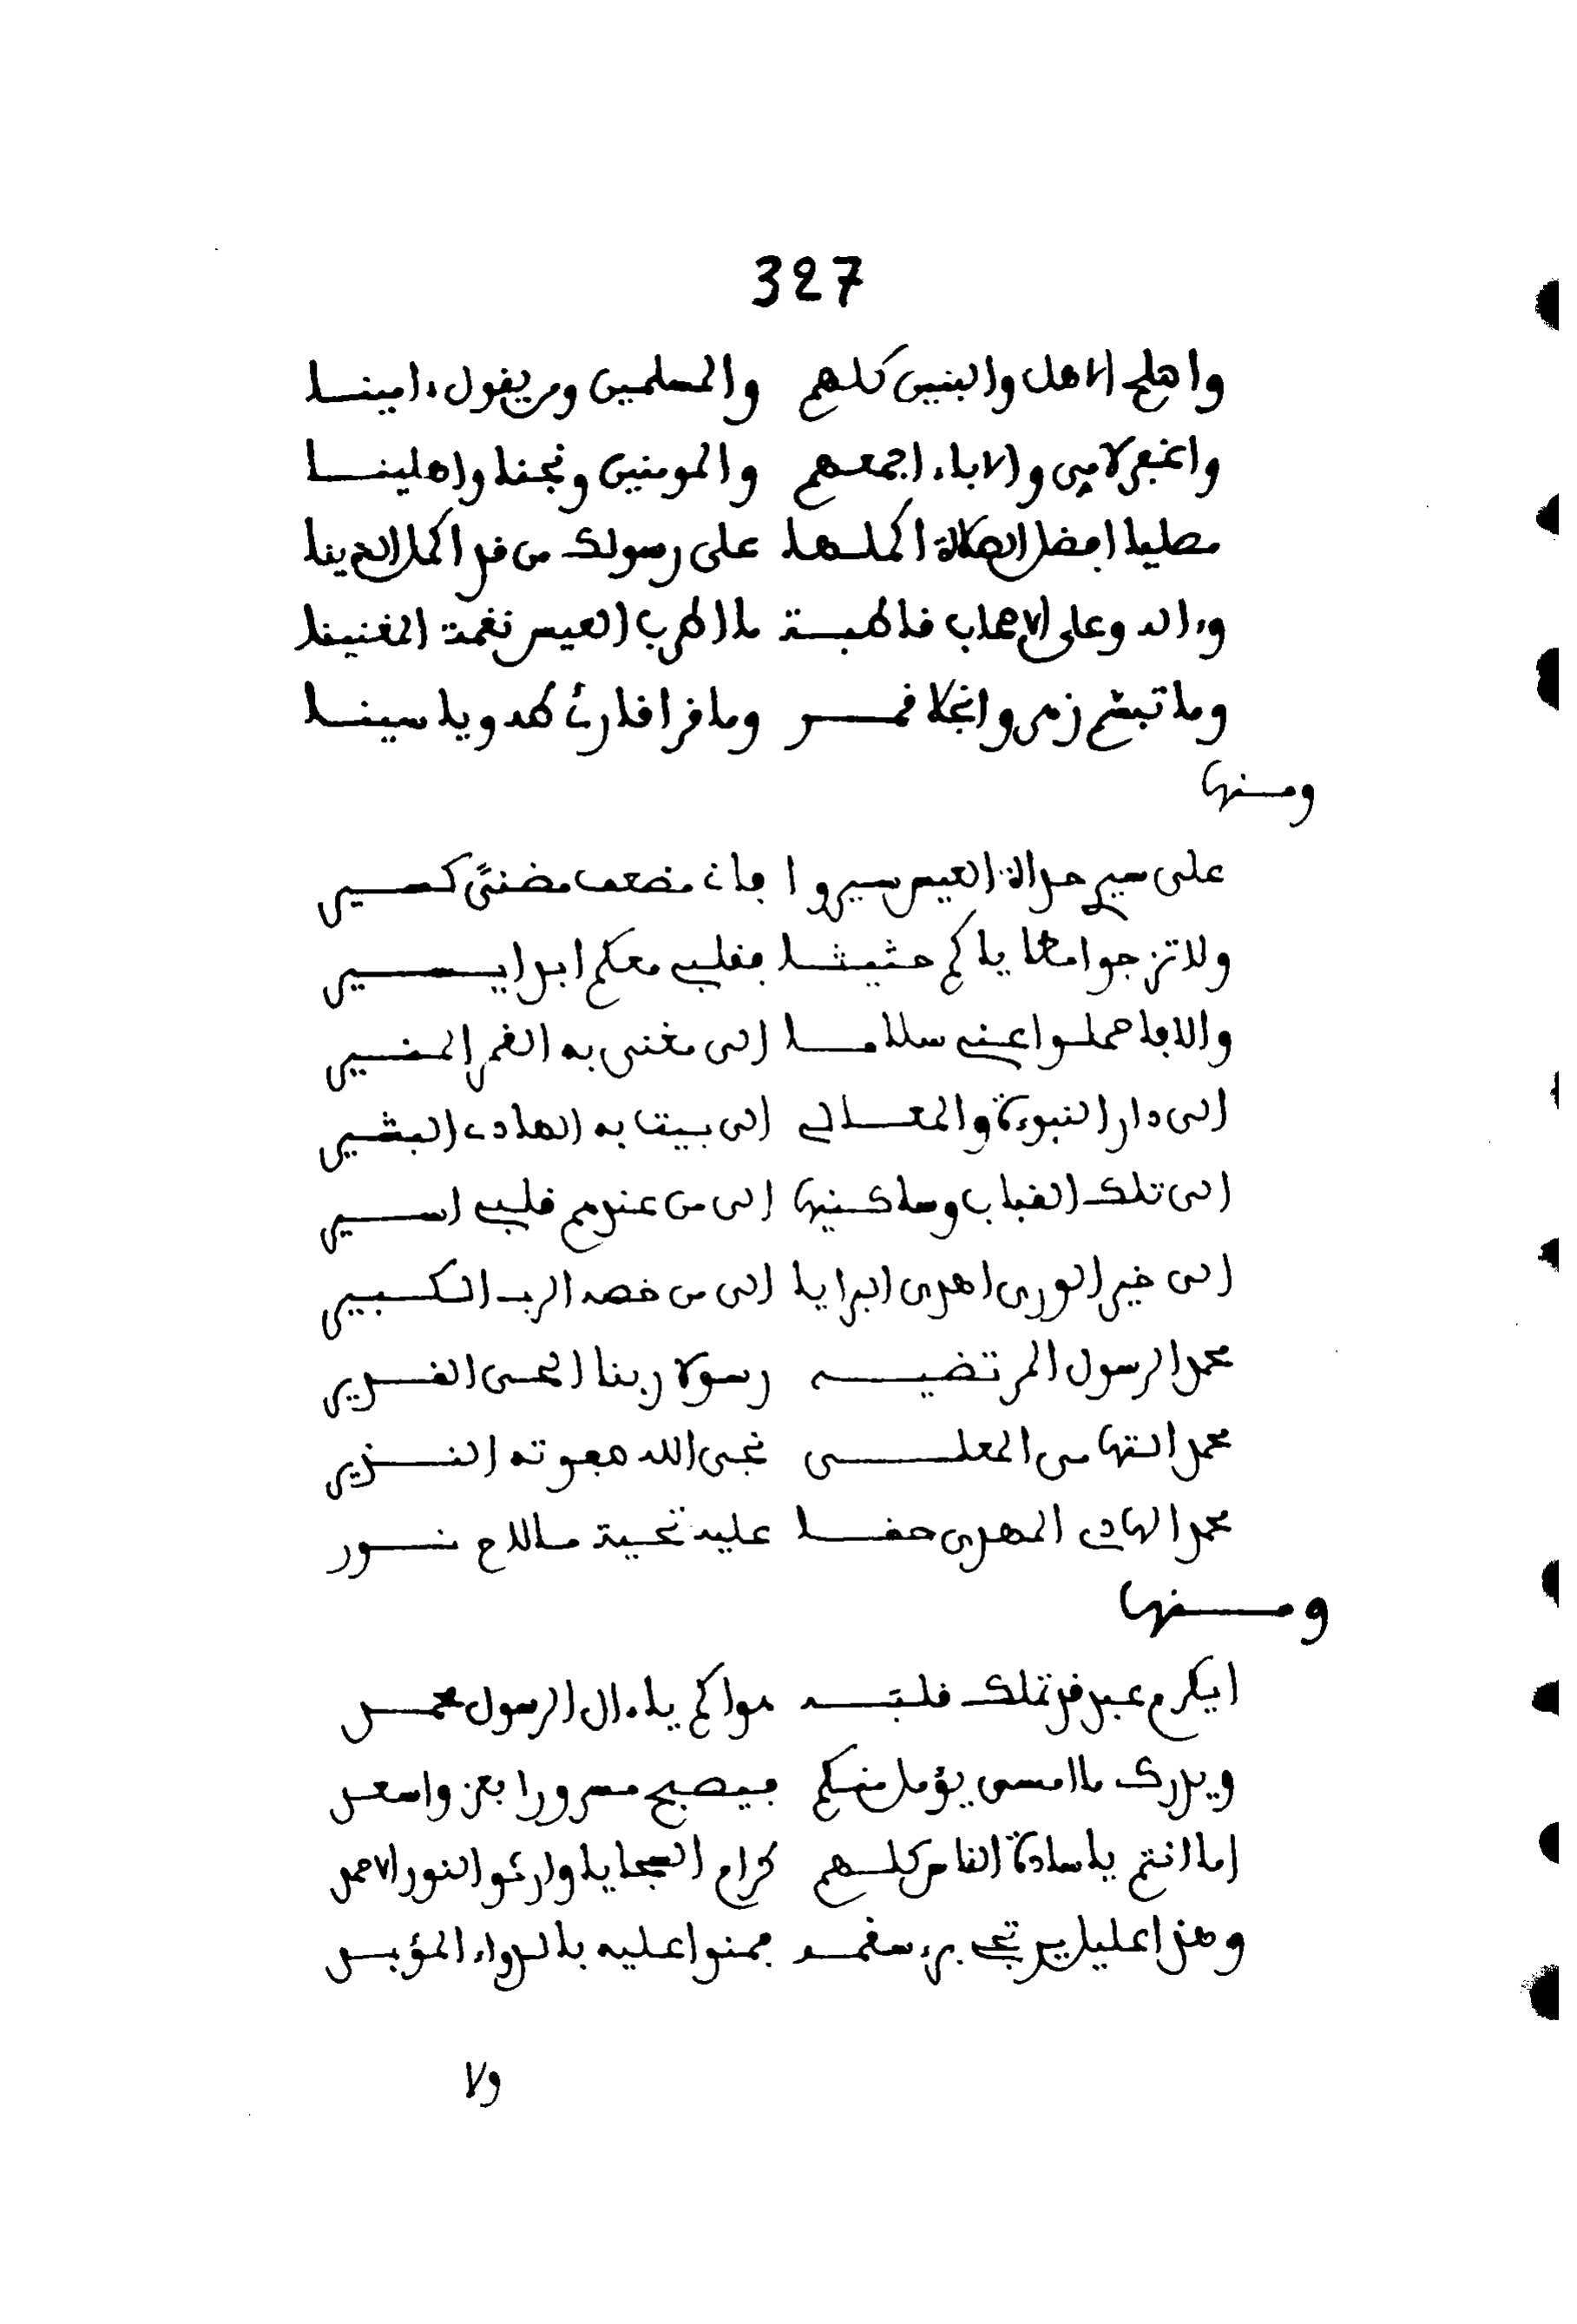 327
واصلح الاهل والبنين كلهم والمسلمين ومن يقول ءامينا
واغفر لامي والاباء اجمعهم والمومنين ونجنا واهلينا
مصليا افضل الصلاة اكملها على رسولك من قد اكمل الدينا
وءاله وعلى الاصحاب قاطبة ما اطرب العيس نغمة المغنينا
وما تبسم زهر وانجلا قمر وما قرا قارئ طه وياسينا
ومنها
على سير حداة العيس سيروا فان مضعف مضنى كسير
ولا تزجوا مطاياكم حثيثا فقلبي معكم ابدا يسير
والا فاحملوا عني سلاما الى مغنى به القمر المنير
الى دار النبوءة والمعالي الى بيت به الهادي البشير
الى تلك القباب وساكنيها الى من عندهم قلبي اسير
الى خير الورى اهدى البرايا الى من خصه الرب الكبير
محمد الرسول المرتضيه رسولا ربنا الحى القدير
محمد التهامى المعلى نجى الله صفوته النذير
محمد الهادي المهدى حقا عليه تحية ما لاح نور
ومنها
ايكرم عبد قد تملك قلبه هواكم يا ءال الرسول محمد
ويدرك ما امسى يؤمل منكم فيصبح مسرورا بعز واسعد
اما انتم يا سادة الناس كلهم كرام السجايا وارثو النور الاحمد
وهذا عليل يرتجي برء سقمه فمنوا عليه بالدواء المؤبد
ولا